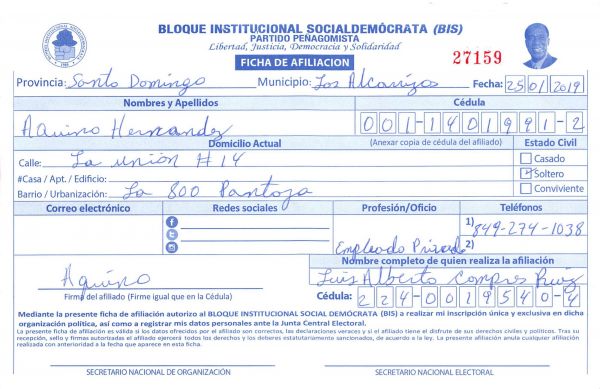 BLOQUE INSTITUCIONAL SOCIALDEMÓCRATA (BIS)
PARTIDO PEÑAGOMISTA
Libertad, Justicia, Democracia y Solidaridad
FICHA DE AFILIACION
27159
Provincia: Santo Domingo Municipio: Los Alcarrizos Fecha: 25/01/2019
Nombres y Apellidos Cédula
Aquino Hernandez 001-1401991-2
Domicilio Actual (Anexar copia de cédula del afiliado) Estado Civil
Calle: La union #14 Casado
#Casa / Apt. / Edificio: Soltero
Barrio / Urbanización: La 800 Pantoja Conviviente
Correo electrónico Redes sociales Profesión/Oficio Teléfonos
1) 849-274-1038
Empleado Privado 2)
Nombre completo de quien realiza la afiliación
Aquino Luis Alberto Compres Ruiz
Firma del afiliado (Firme igual que en la Cédula) Cédula: 224-0019540-4
Mediante la presente ficha de afiliación autorizo al BLOQUE INSTITUCIONAL SOCIAL DEMÓCRATA (BIS) a realizar mi inscripción única y exclusiva en dicha
organización política, así como a registrar mis datos personales ante la Junta Central Electoral.
La presente ficha de afiliación es válida si los datos ofrecidos por el afiliado son correctos, las declaraciones veraces y si el afiliado tiene el disfrute de sus derechos civiles y políticos. Tras su
recepción, sello y firmas autorizadas el afiliado ejercerá todos los derechos y los deberes estatutariamente sancionados, de acuerdo a la ley. La presente afiliación anula cualquier afiliación
realizada con anterioridad a la fecha que aparece en esta ficha.
SECRETARIO NACIONAL DE ORGANIZACIÓN SECRETARIO NACIONAL ELECTORAL